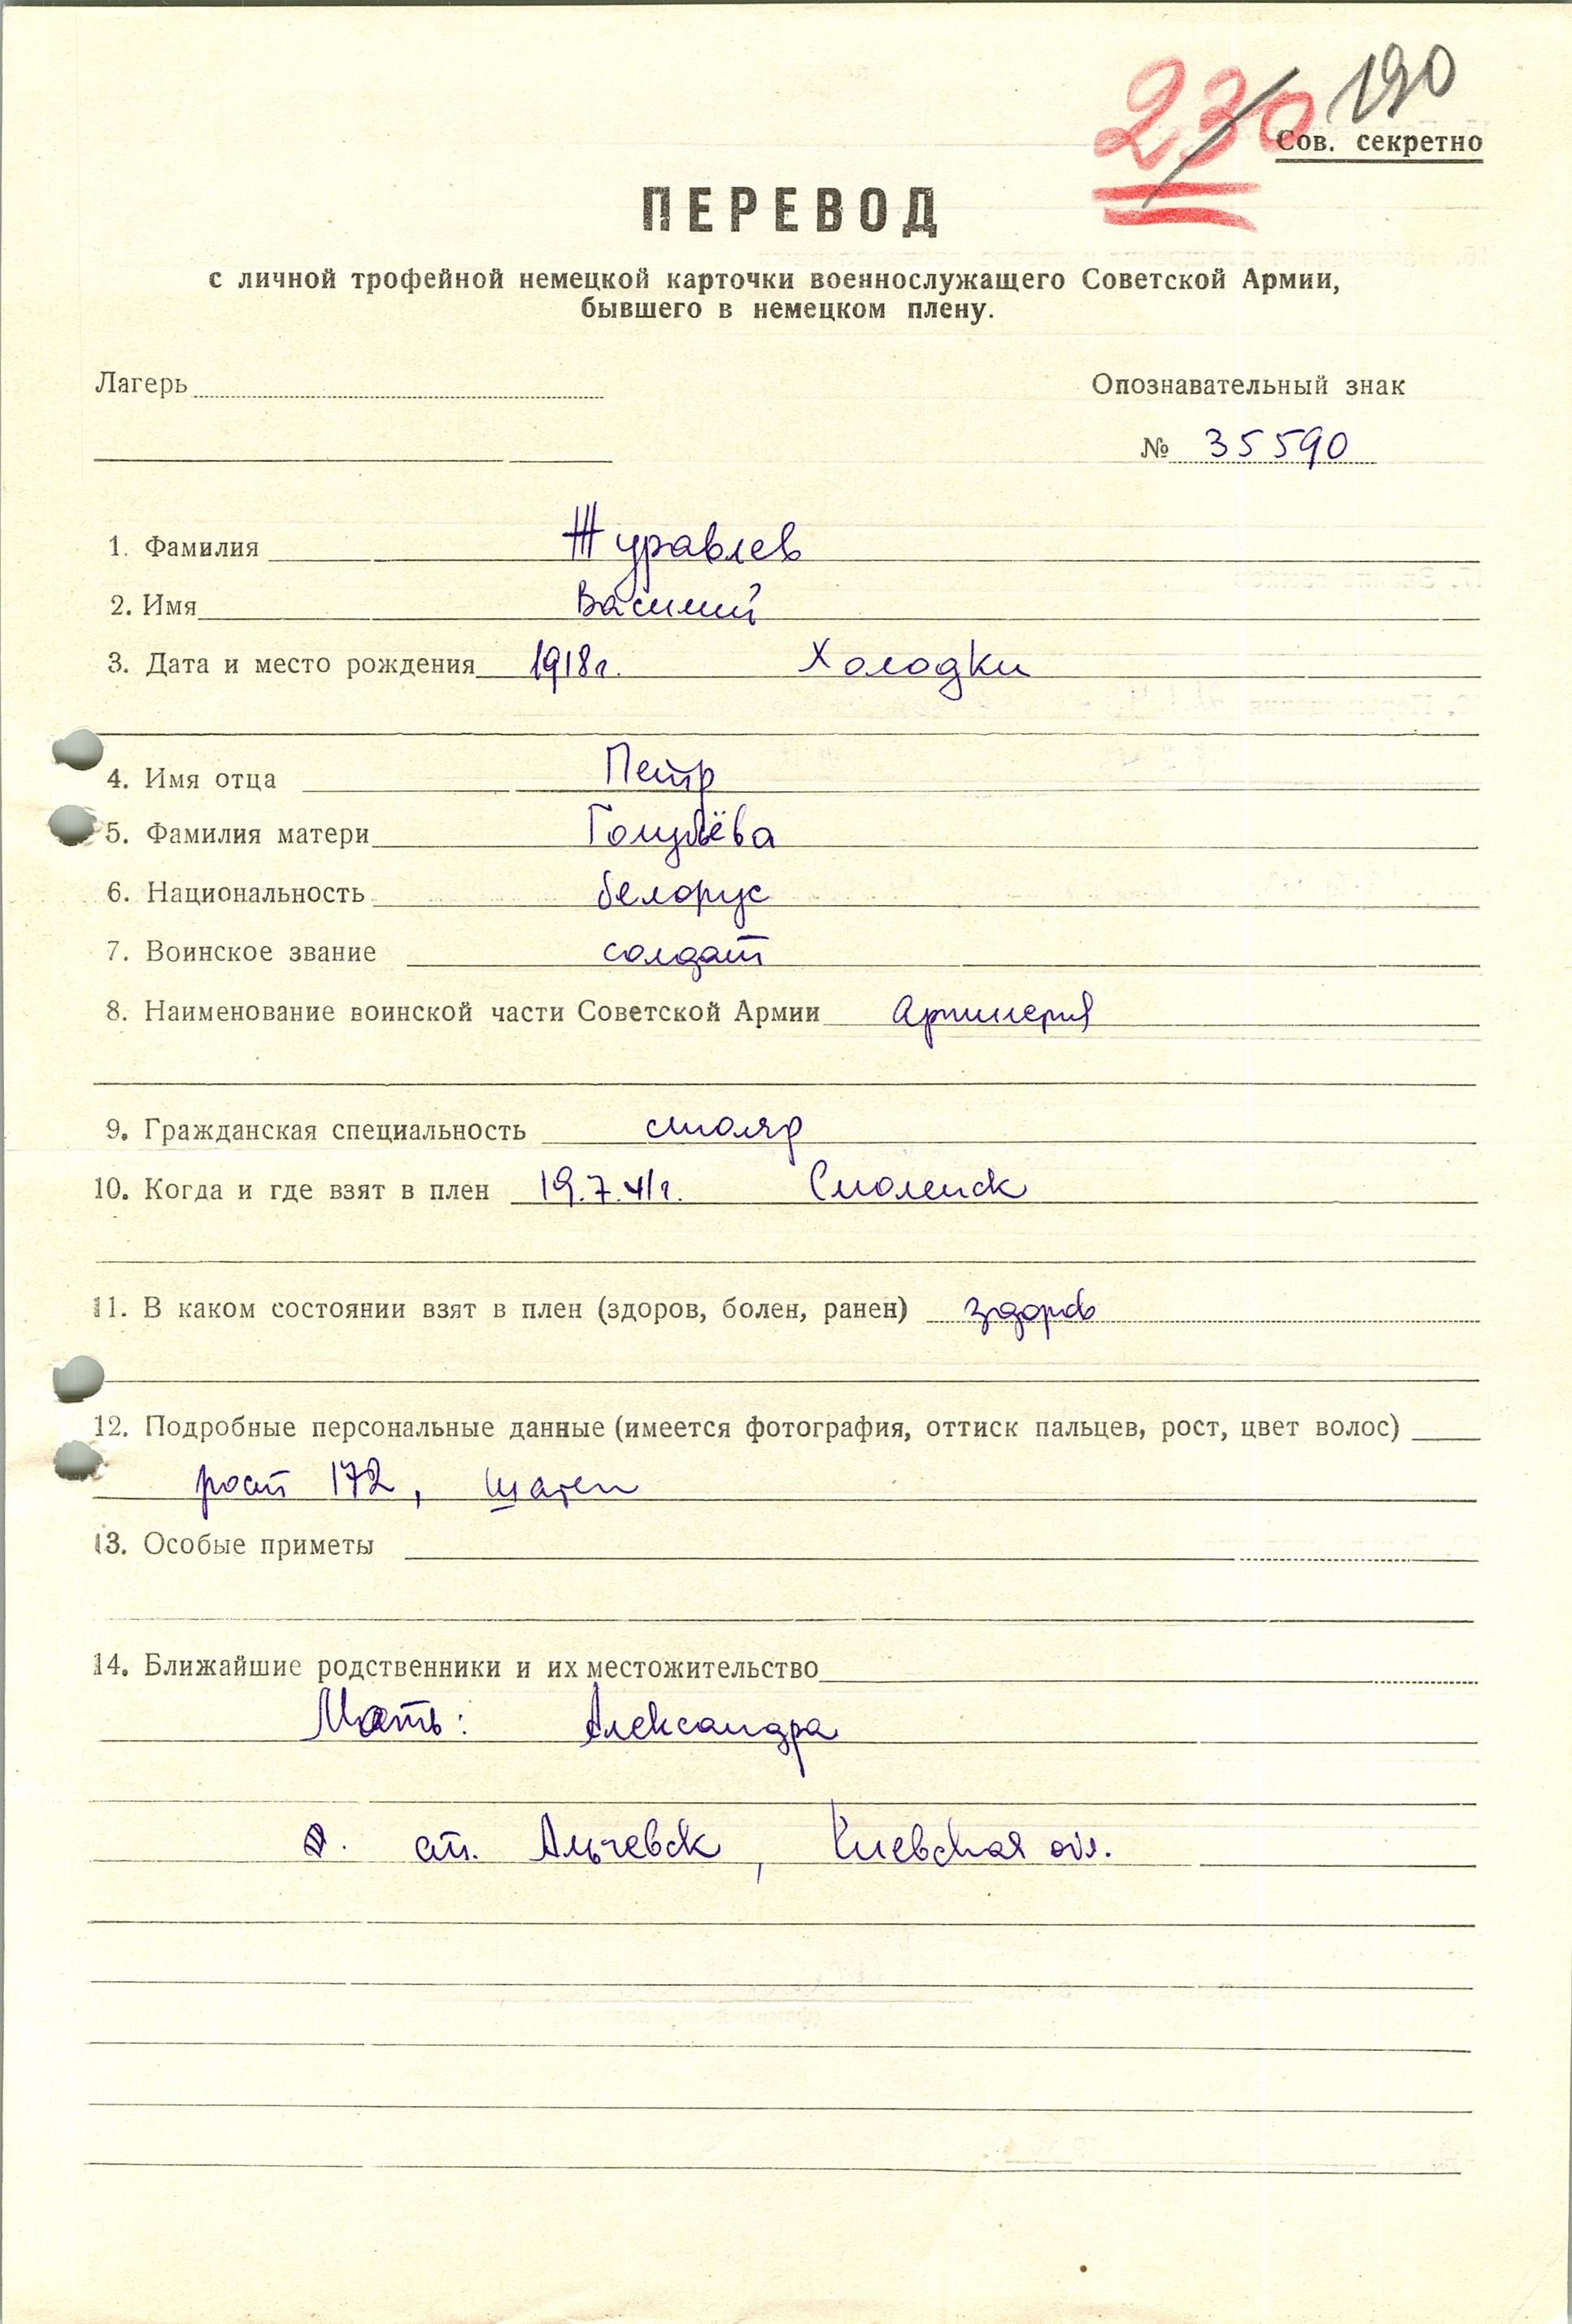 230 190
Сов. секретно
ПЕРЕВОД
с личной трофейной немецкой карточки военнослужащего Советской Армии,
бывшего в немецком плену.
Лагерь
Опознавательный знак
№ 35590
1. Фамилия Журавлев
2. Имя Василий
3. Дата и место рождения 1918г. Холодки
4. Имя отца Петр
5. Фамилия матери Голубёва
6. Национальность белорус
7. Воинское звание солдат
8. Наименование воинской части Советской Армии Артилерия
9. Гражданская специальность столяр
10. Когда и где взят в плен 19.7.41г. Смоленск
11. В каком состоянии взят в плен (здоров, болен, ранен) здоров
12. Подробные персональные данные (имеется фотография, оттиск пальцев, рост, цвет волос)
рост 172, шатен
13. Особые приметы
14. Ближайшие родственники и их местожительство
Мать: Александра
ст. Альчевск, Киевская обл.